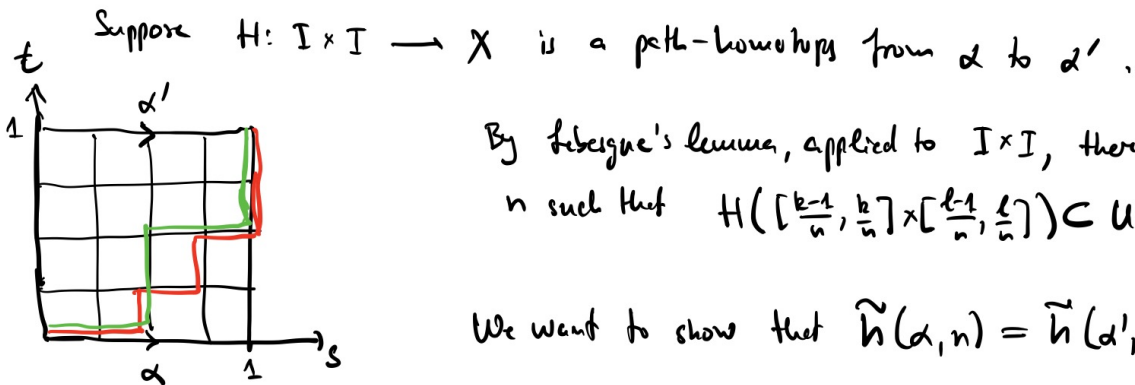 Suppose H: I × I → X is a path-homotopy from α to α'.
t
α'
1
By Lebesgue's lemma, applied to I×I, there
n such that H([k-1/n, k/n]×[l-1/n, l/n]) ⊂ U
We want to show that h̃(α,n) = h̃(α',
α
1
s